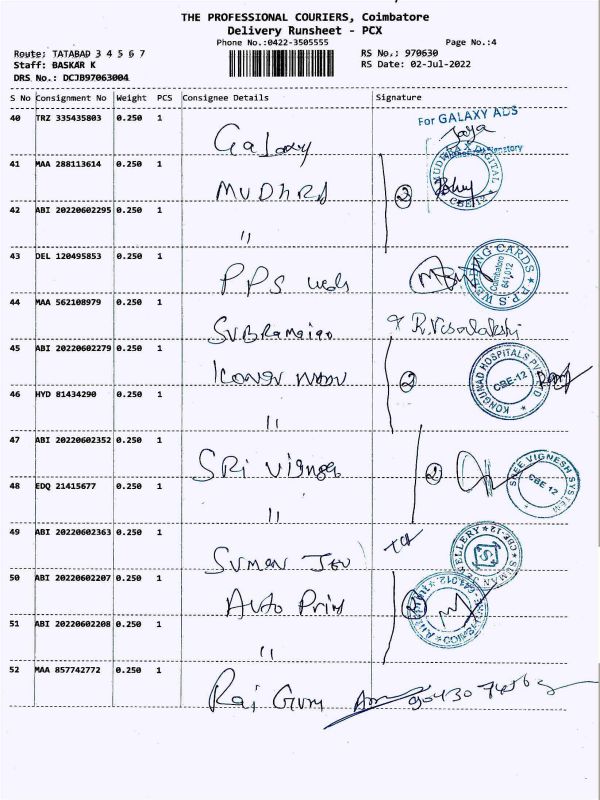 THE PROFESSIONAL COURIERS, Coimbatore
Delivery Runsheet - PCX
Phone No.:0422-3505555
Page No.:4
Route: TATABAD 3 4 5 6 7
RS No.: 970630
Staff: BASKAR K
RS Date: 02-Jul-2022
DRS No.: DCJB97063004
S No Consignment No Weight PCS Consignee Details Signature
40 TRZ 335435803 0.250 1 Galaxy
For GALAXY ADS
Jaya
41 MAA 288113614 0.250 1 MUDHRA
MUDHRAX DIGITAL CBE-12
2
42 ABI 20220602295 0.250 1 "
43 DEL 120495853 0.250 1 PPS
P.P.S. WEDDING CARDS Coimbatore 641 012
44 MAA 562108979 0.250 1 R. Visalakshi
45 ABI 20220602279 0.250 1
2
KONGUNAD HOSPITALS CBE-12
46 HYD 81434290 0.250 1 "
47 ABI 20220602352 0.250 1 SRI
2
SREE VIGNESH SYSTEM CBE 12
48 EDQ 21415677 0.250 1 "
49 ABI 20220602363 0.250 1 SUMAN JEW
SUMAN JEWELLERY CBE-12
50 ABI 20220602207 0.250 1 Auto Prim
2
51 ABI 20220602208 0.250 1 "
52 MAA 857742772 0.250 1 Raj Guru